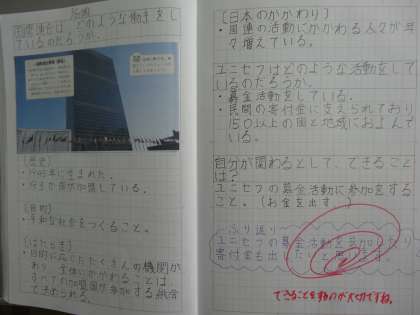 国連は、どのような働きをし
ているのだろうか。
(歴史)
・1945年に生まれた。
が加盟している。
(目的)
・平和な社会をつくること。
(はたらき)
・目的に応じたたくさんの機関が
あり、全体にかかわることは、
すべての加盟国が参加する総会
で決められる。
(日本のかかわり)
・国連の活動にかかわる人々が年
々増えている。
ユニセフはどのような活動をして
いるのだろうか。
・募金活動をしている。
・民間の寄付金に支えられており
150以上の国と地域におよんで
いる。
自分が関わるとして、できること
は?
ユニセフの募金活動に参加をする
こと。(お金を出す)
ふり返り
ユニセフの募金活動を参加したり
寄付金も出したいと思います。
できることを動のが大切ですね。